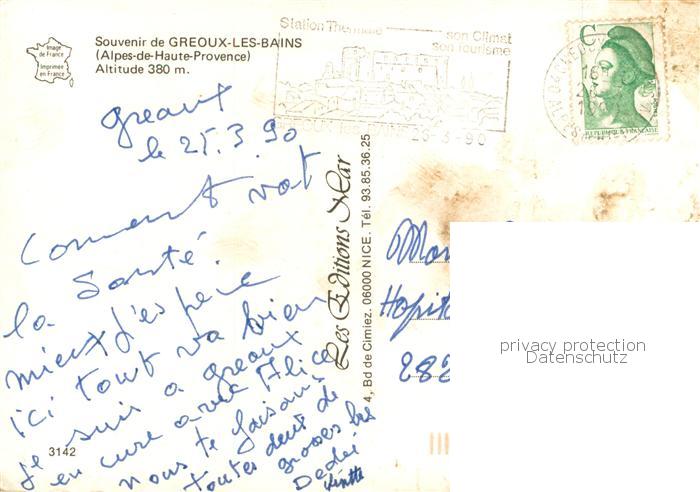 Image
de France
Imprimée
en France
Souvenir de GREOUX-LES-BAINS
(Alpes-de-Haute-Provence)
Altitude 380 m.
Station Thermale
son Climat
son tourisme
26-3 90
C
REPUBLIQUE FRANÇAISE
Greaux
le 25.3.90
Comment vat
la Santé.
mieux j'espere
ici tout va bien
je suis a greaux
en cure avec Alice
nous te faisons
toutes deux de
grosses bis
Dedei
3142
Les Editions Mar
4, Bd de Cimiez. 06000 NICE. Tél. 93.85.36.25
Mon
Hopit
282
privacy protection
Datenschutz